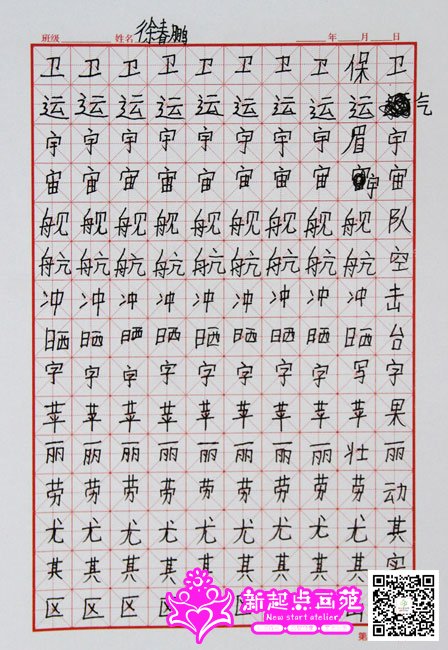 班级 姓名 徐春鹏 年 月 日
卫 卫 卫 卫 卫 卫 卫 卫 保 卫
运 运 运 运 运 运 运 运 运 气
宇 宇 宇 宇 宇 宇 宇 宇 眉 宇
宙 宙 宙 宙 宙 宙 宙 宙 宇 宙
舰 舰 舰 舰 舰 舰 舰 舰 舰 队
航 航 航 航 航 航 航 航 航 空
冲 冲 冲 冲 冲 冲 冲 冲 冲 击
晒 晒 晒 晒 晒 晒 晒 晒 晒 台
字 字 字 字 字 字 字 字 写 字
苹 苹 苹 苹 苹 苹 苹 苹 苹 果
丽 丽 丽 丽 丽 丽 丽 丽 壮 丽
劳 劳 劳 劳 劳 劳 劳 劳 劳 动
尤 尤 尤 尤 尤 尤 尤 尤 尤 其
其 其 其 其 其 其 其 其 其 实
区 区 区 区 区 区
新起点画苑
New start atelier
第